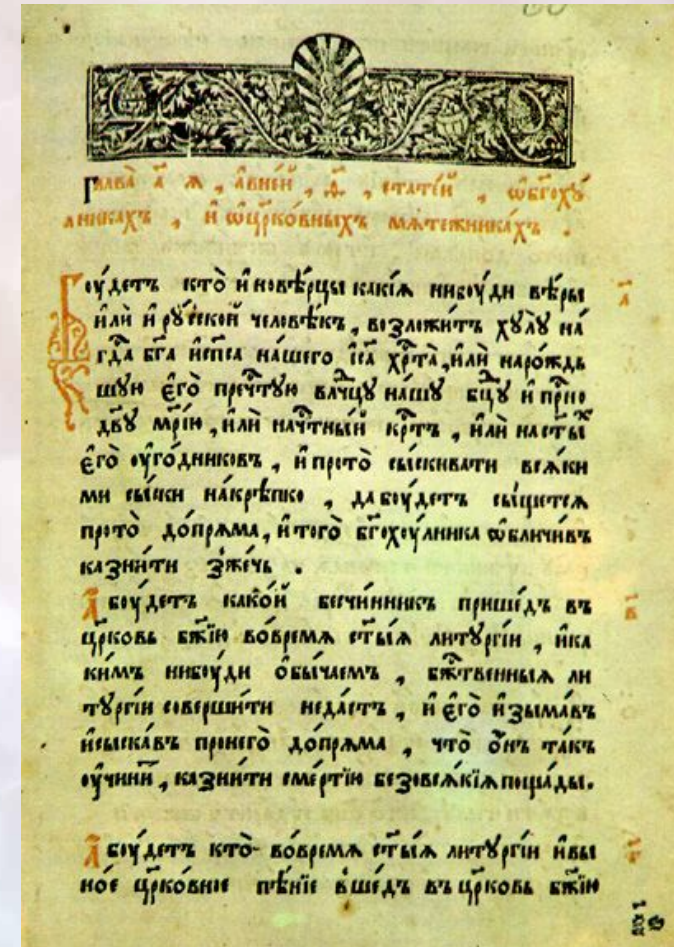 Глава а҃ я, авней, ѳ҃, статей, ѡбг҃оху
лникахъ, и ѡцр҃ковныхъ мѧтежникахъ.
Боудетъ кто иновѣрцы какїя нибоуди вѣры
или и руской человѣкъ, возложитъ хулу на
гд҃а бг҃а испса нашего і҃са хр҃та, или нарождь
шую его преч҃тую влч҃цу нашу бц҃у и прн҃о
дв҃у мр҃їю, или нач҃тный кр҃тъ, или наст҃ыхъ
его оугодниковъ, и прото сыскивати всѧки
ми сыски накрѣпко, дабоудетъ сыщетсѧ
прото допрѧма, итого бг҃охоулника ѡбличивъ
казнити зжечь.
а҃
Абоудетъ какой бесчинникъ пришедъ въ
цр҃ковь бж҃їю вовремѧ ст҃ыѧ литургїи, ика
кимъ нибоуди обычаемъ, бж҃твенныѧ ли
тꙋргїи совершити недастъ, и его изымавъ
исыскавъ пронего допрѧма, что онъ такъ
оучинитъ, казнити смертїю безовсѧкїѧ пощады.
в҃
Абоудетъ кто вовремѧ ст҃ыѧ литꙋргїи ивы
ное цр҃ковное пѣнїе вшедъ въ цр҃ковь бж҃їю
г҃